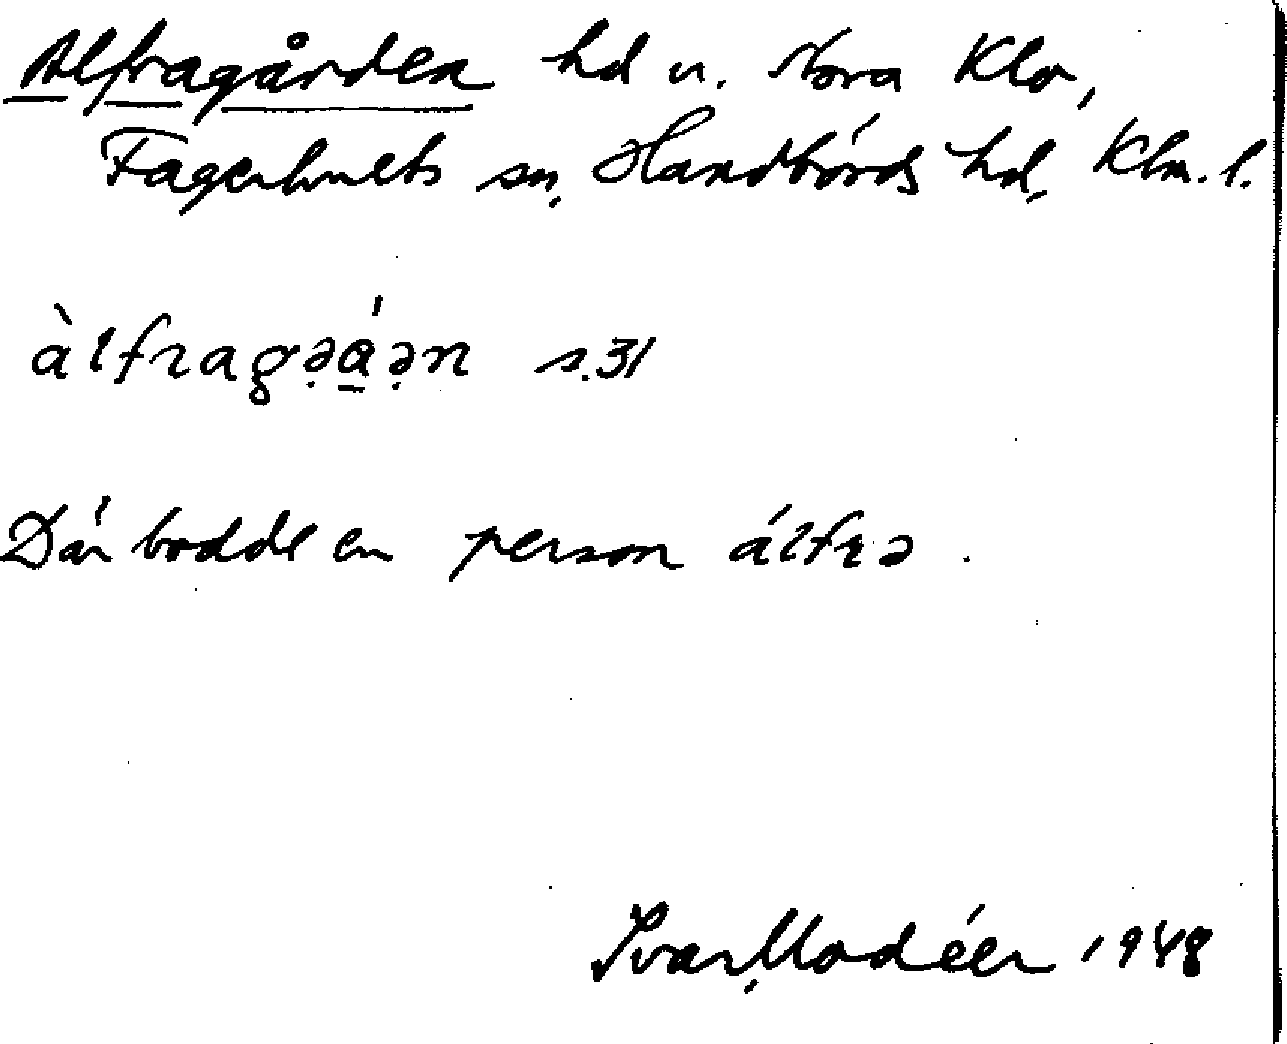 Alfragården hd u. Norra Klo,
Fagerhults sn, Handbörds hd, Klm. l.
àlfragə̣á̱ə̣n s. 31
Där bodde en person álfrə.
Ivar Modéer 1948